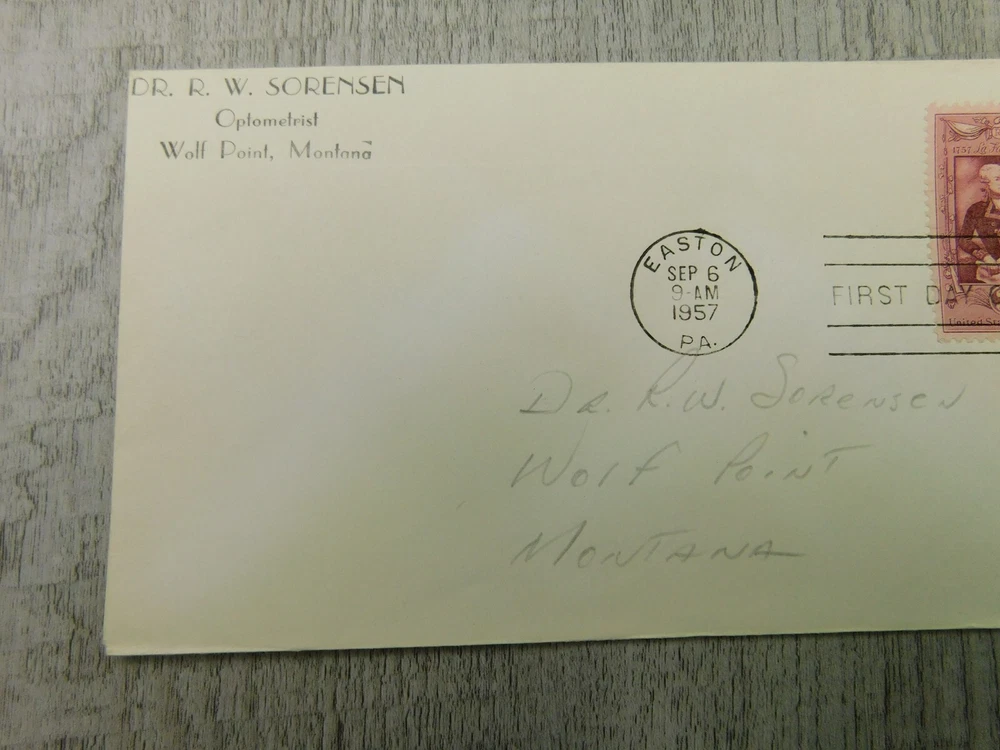 DR. R. W. SORENSEN
Optometrist
Wolf Point, Montana
EASTON
SEP 6
9-AM
1957
PA.
FIRST DAY
1757
United
Dr. R.W. Sorensen
Wolf Point
Montana